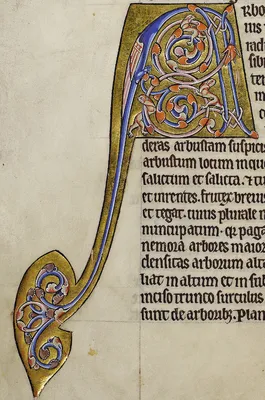 Arbo
ius
radi
sibi
ter
m
c
deras arbustam suspicie
arbustum locum inquo
salictum et salicta. & tu
et uirentes. frutex breuis
et tegat. cuius plurale n
nuncupatum. qd paga
nemora arbores maiore
densitas arborum alta
liat in altum et in sub
inciso trunco surculus
sunt de arborib; Plan